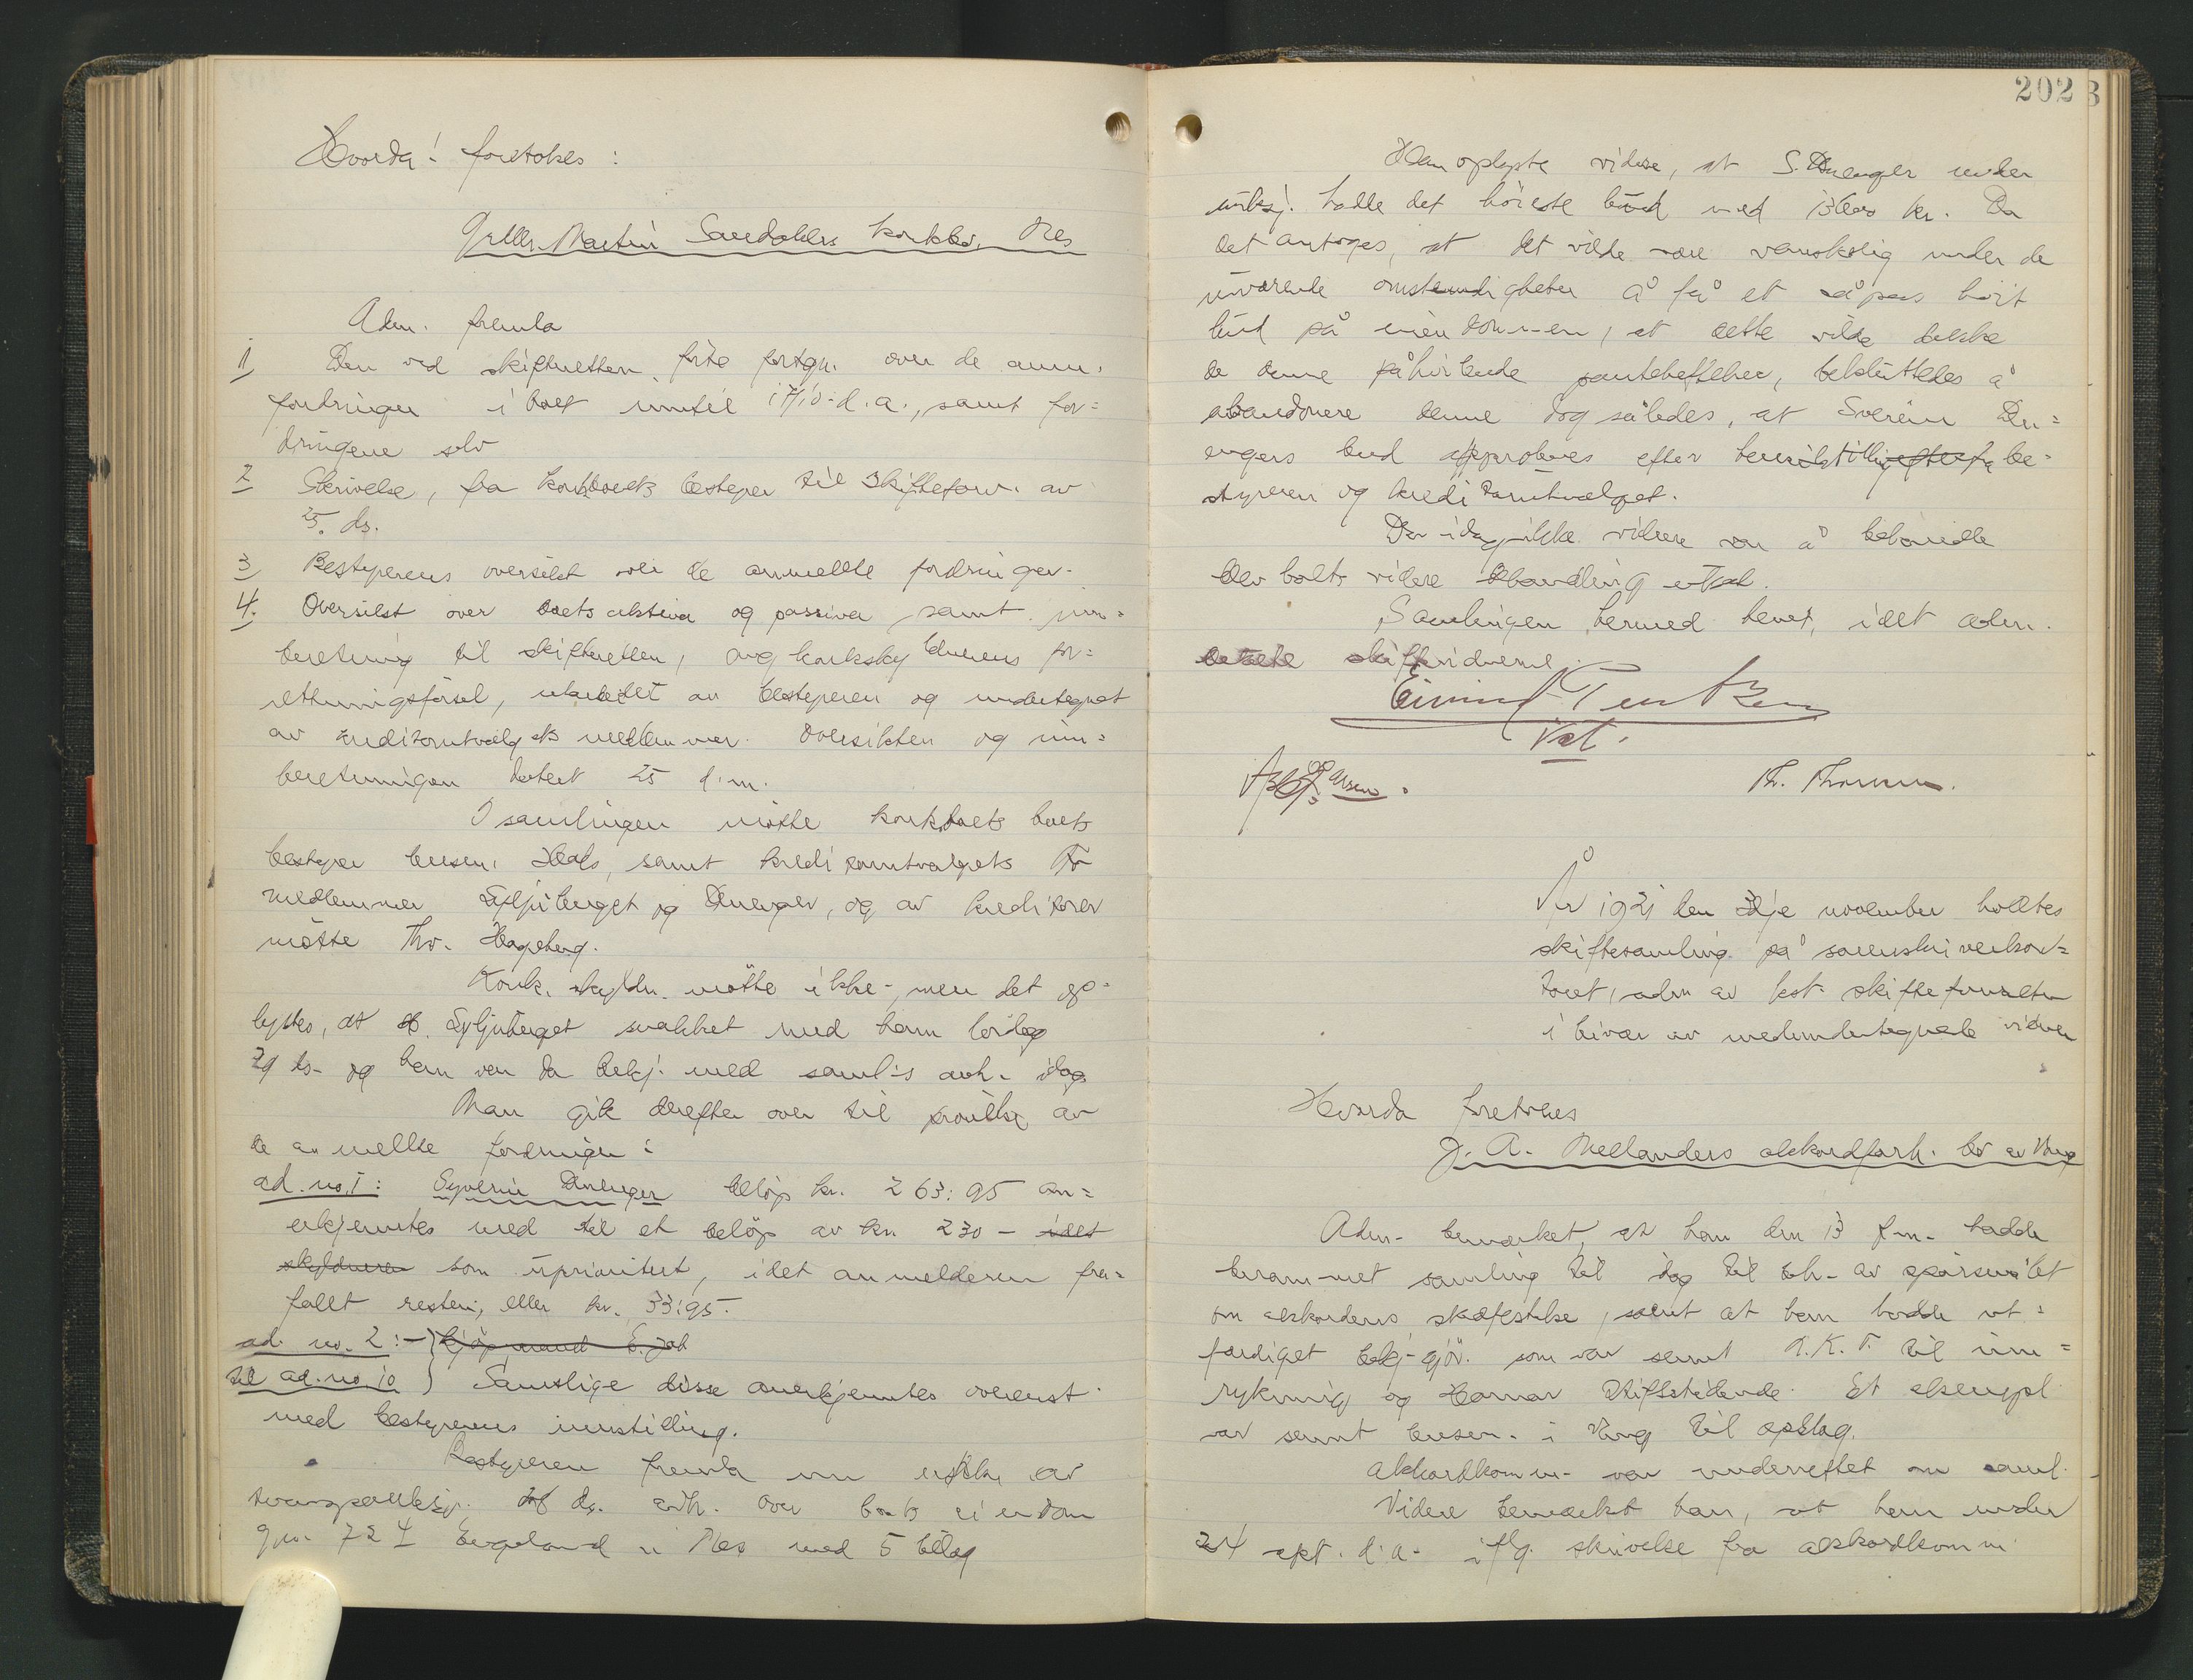 Hvorda! foretokes:
Martin Sandahlens konkbo, Nes
Adm. fremla
1) Den ved skifteretten førte fortgn. over de anm.
fordringer i boet inntil 17/10 d.a., samt for=
dringene selv
2 Skrivelse, fra konkboets bestyrer til skifteforv. av
25. ds.
3) Bestyrerens oversikt over de anmeldte fordringer.
4. Oversikt over boets aktiva og passiva, samt inn=
beretning til skifteretten, ang konkskyldnerens for=
retningsførsel, utarbeidet av bestyreren og undertegnet
av kreditorutvalgets medlemmer. Oversikten og inn=
beretningen datert 25 d.m.
I samlingen møtte konkboets boets
bestyrer lensm. Hals, samt kreditorutvalgets to
medlemmer Syljuberget og Dunenger, og av kreditorer
møtte Thv. Hageberg.
Konk. skyldn. møtte ikke, men det op=
lystes, at Syljuberget snakket med ham lørdag
29 ds. og han var da bekj. med saml's avh. idag
Man gik derefter over til prøvelse av
de anmeldte fordringer:
ad. no. 1: Syverin Dunenger beløp kr. 263:95 an=
erkjentes med til et beløp av kr. 230 - idet
skyldneren som uprioritert, idet anmelderen fra=
fallt resten, eller kr. 33:95.
ad. no. 2:-) kjøpmand E. Jo
til ad. no. 10 ) Samtlige disse anerkjentes overenst
med bestyrerens innstilling.
Bestyreren fremla en utskr. av
tvangsauksj. ds. avh. over boets eiendom
gno. 72 Engeland i Nes med 5 bilag
202
Han oplyste videre, at S. Dunenger under
auksj. hadde det høieste bud med 13600 kr. Da
det antoges, at det vilde være vanskelig under de
nuværende omstendigheter å få et såpas høit
bud på eiendommen, at dette vilde dekke
de denne påhvilende pantebeftelser, besluttedes å
abandonere denne dog således, at Sverin Dun=
engers bud approberes efter innstilling efter fra be=
styreren og kreditorutvalget.
Da idag ikke videre var å behandle
blev boets videre behandling utsat.
Samlingen hermed hevet, idet adm.
betalte skiftevidnerne.
Th. Thorsen.
År 1921 den 3dje november holdtes
skiftesamling på sorenskriverkon=
toret, adm av kst. skifteforvalter
i bivær av medundertegnede vidner
Hvorda foretokes
J. A. Mellanders akkordforh. bo av Vang
Adm. bemerket, at han den 13 f.m. hadde
berammet samling til idag til beh. av spørsmålet
om akkordens stadfestelse, samt at han hadde ut=
færdiget bekj-gjør. som var sennt N.K.T. til inn=
rykning og Hamar Stiftstidende. Et eksempl
var sennt lensm. i Vang til opslag.
Akkordkomm. var underrettet om saml.
Videre bemerket han, at han under
24 spt. d.a. iflg. skrivelse fra akkordkomm